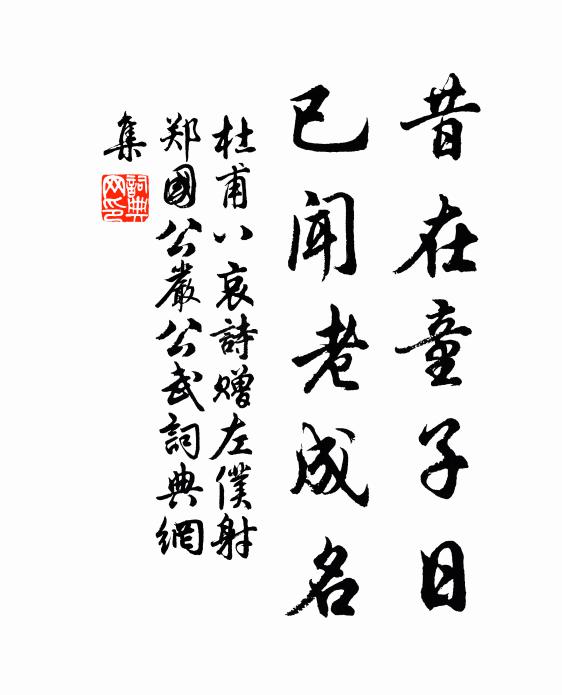 昔在童子日
已闻老成名
杜甫八哀詩赠左僕射
郑國公嚴公武詞典網
集
詞典网印